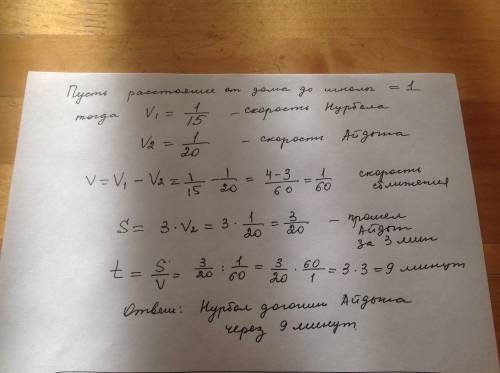 Пусть расстояние от дома до школы = 1
тогда V₁ = 1/15 – скорость Нурбола
V₂ = 1/20 – скорость Айдына
V = V₁ – V₂ = 1/15 – 1/20 = (4–3)/60 = 1/60 скорость сближения
S = 3 · V₂ = 3 · 1/20 = 3/20 – прошел Айдын за 3 мин
t = S/V = 3/20 : 1/60 = 3/20 · 60/1 = 3·3 = 9 минут
Ответ: Нурбол догонит Айдына
через 9 минут